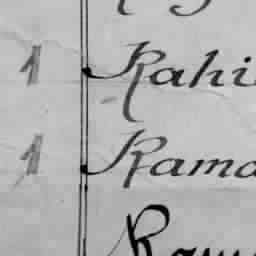 1 Rahi
1 Rama
Ram